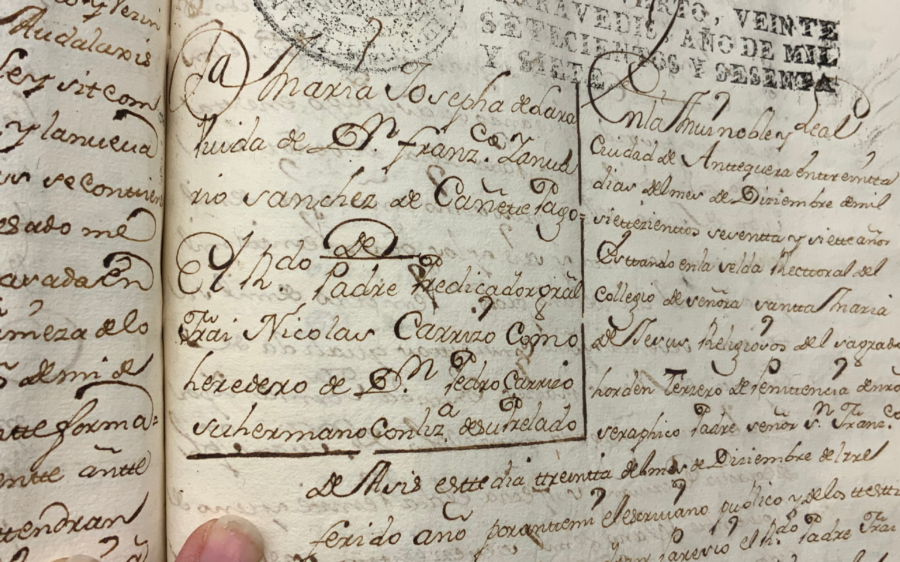 o y verin
Audalaxis
ley sit com
y lanueva
us se contien
esado me
avada en
imeza de lo
de mi de
atte forma=
ente antte
ttendran
CUARTO, VEINTE
MARAVEDIS, AÑO DE MIL
SETECIENTOS Y SESENTA
Y SIETE
Da Maria Josepha de Lara
viuda de Dn. Franzco. Zanua
rio sanchez de Cañete Pago=
De
El Rdo. Padre Predicador Gral
Frai Nicolas Carrizo Como
heredero de Dn. Pedro Carrizo
su hermano Con liza. de su Prelado
En la Mui noble y Leal
Ciudad de Anttequera en ttreintta
dias del mes de Diziembre de mil
siettezienttos sesentta y siette años
Esttando en la zelda Recttoral del
Collegio de señora santta Maria
de Jesus Religiosos del sagrado
horden terzero de Penitencia de nro
seraphico Padre señor Sn. Franco.
De Asis estte dia ttreintta del mes de Diziembre del rre
ferido año por antte mi el escrivano publico y de los testti
parezio el Rdo Padre Frai